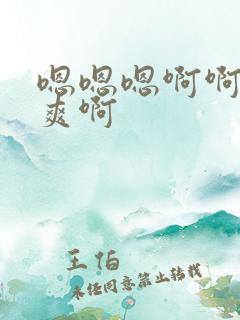 嗯嗯嗯啊啊
爽啊
王怕
未经同意禁止转载